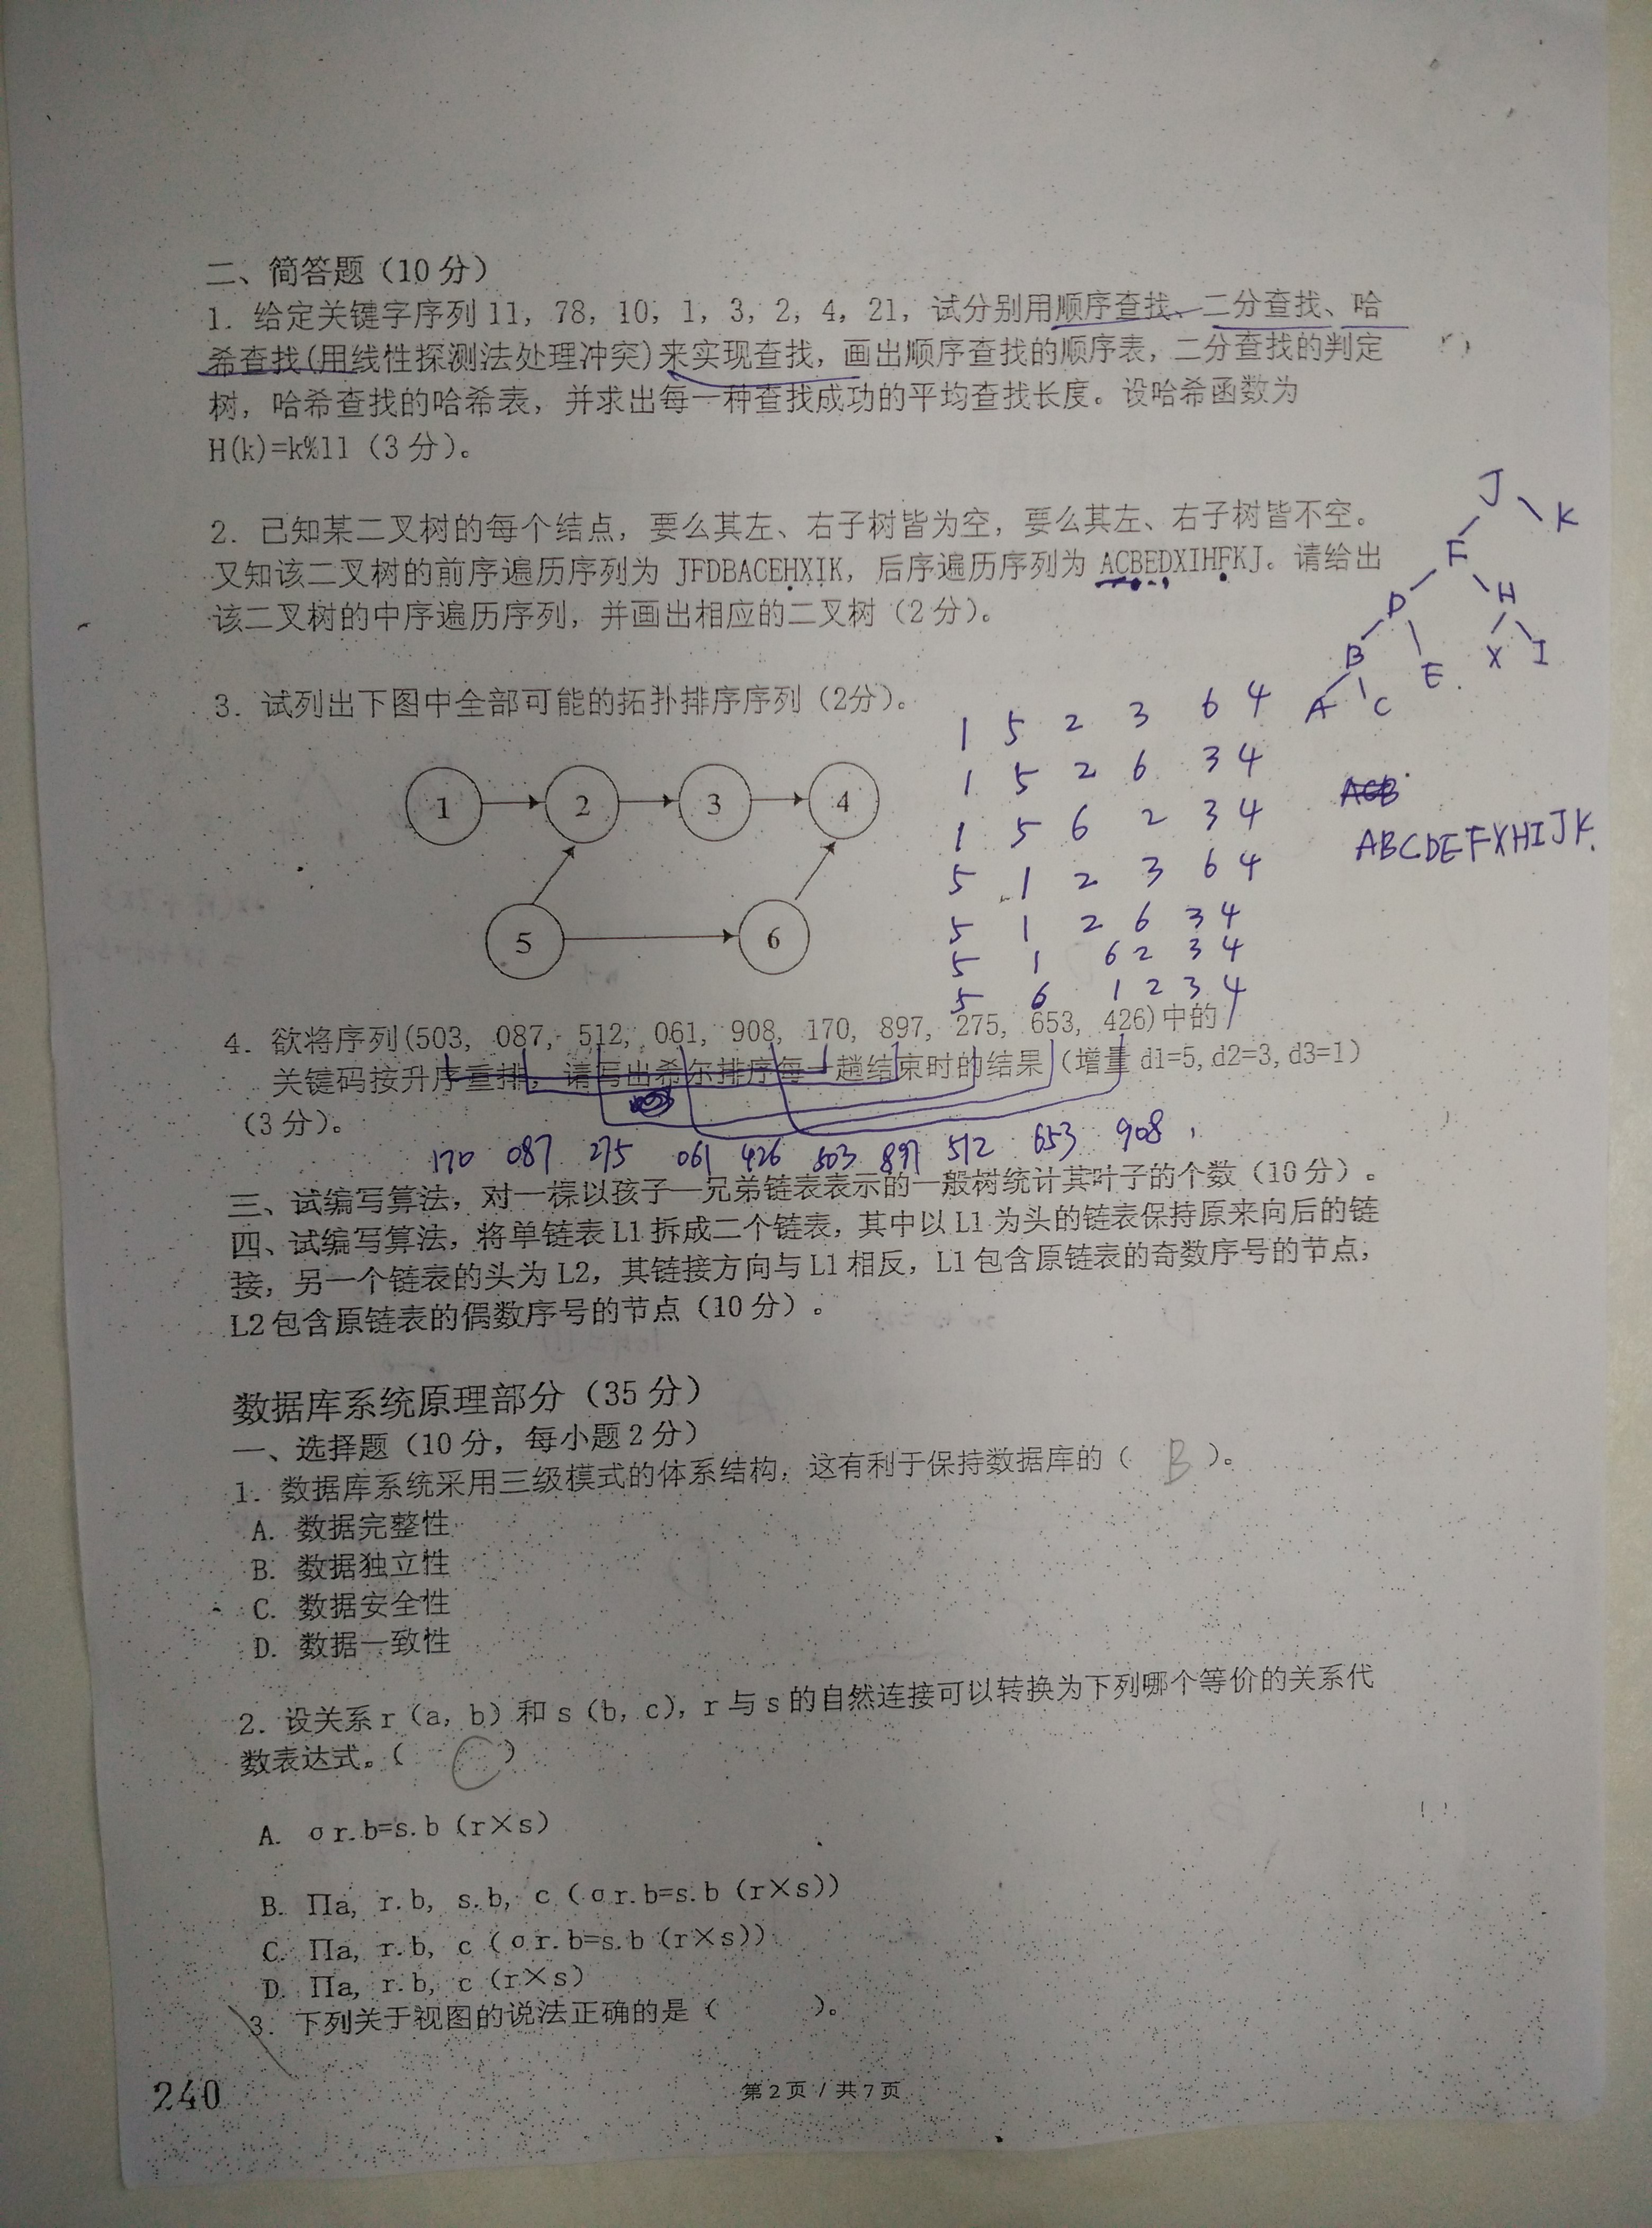 二、简答题（10分）
1. 给定关键字序列11，78，10，1，3，2，4，21，试分别用顺序查找、二分查找、哈
希查找(用线性探测法处理冲突)来实现查找，画出顺序查找的顺序表，二分查找的判定
树，哈希查找的哈希表，并求出每一种查找成功的平均查找长度。设哈希函数为
H(k)=k%11（3分）。
2. 已知某二叉树的每个结点，要么其左、右子树皆为空，要么其左、右子树皆不空。
又知该二叉树的前序遍历序列为 JFDBACEHXIK，后序遍历序列为 ACBEDXIHFKJ。请给出
该二叉树的中序遍历序列，并画出相应的二叉树（2分）。
J
K
F
D H
B E X I
A C
3. 试列出下图中全部可能的拓扑排序序列（2分）。
1 2 3 4
5 6
1 5 2 3 6 4
1 5 2 6 3 4
1 5 6 2 3 4
5 1 2 3 6 4
5 1 2 6 3 4
5 1 6 2 3 4
5 6 1 2 3 4
ACB
ABCDEFXHIJK.
4. 欲将序列(503, 087, 512, 061, 908, 170, 897, 275, 653, 426)中的
关键码按升序重排，请写出希尔排序每一趟结束时的结果（增量 d1=5, d2=3, d3=1）
（3分）。
170 087 275 061 426 503 897 512 653 908,
三、试编写算法，对一棵以孩子—兄弟链表表示的一般树统计其叶子的个数（10分）。
四、试编写算法，将单链表L1拆成二个链表，其中以L1为头的链表保持原来向后的链
接，另一个链表的头为L2，其链接方向与L1相反，L1包含原链表的奇数序号的节点，
L2包含原链表的偶数序号的节点（10分）。
数据库系统原理部分（35分）
一、选择题（10分，每小题2分）
1. 数据库系统采用三级模式的体系结构，这有利于保持数据库的（ B ）。
A. 数据完整性
B. 数据独立性
C. 数据安全性
D. 数据一致性
2. 设关系r（a，b）和s（b，c），r与s的自然连接可以转换为下列哪个等价的关系代
数表达式。（ C ）
A. σr.b=s.b（r×s）
B. Πa, r.b, s.b, c（σr.b=s.b（r×s））
C. Πa, r.b, c（σr.b=s.b（r×s））
D. Πa, r.b, c（r×s）
3. 下列关于视图的说法正确的是（ ）。
240
第 2 页 / 共 7 页